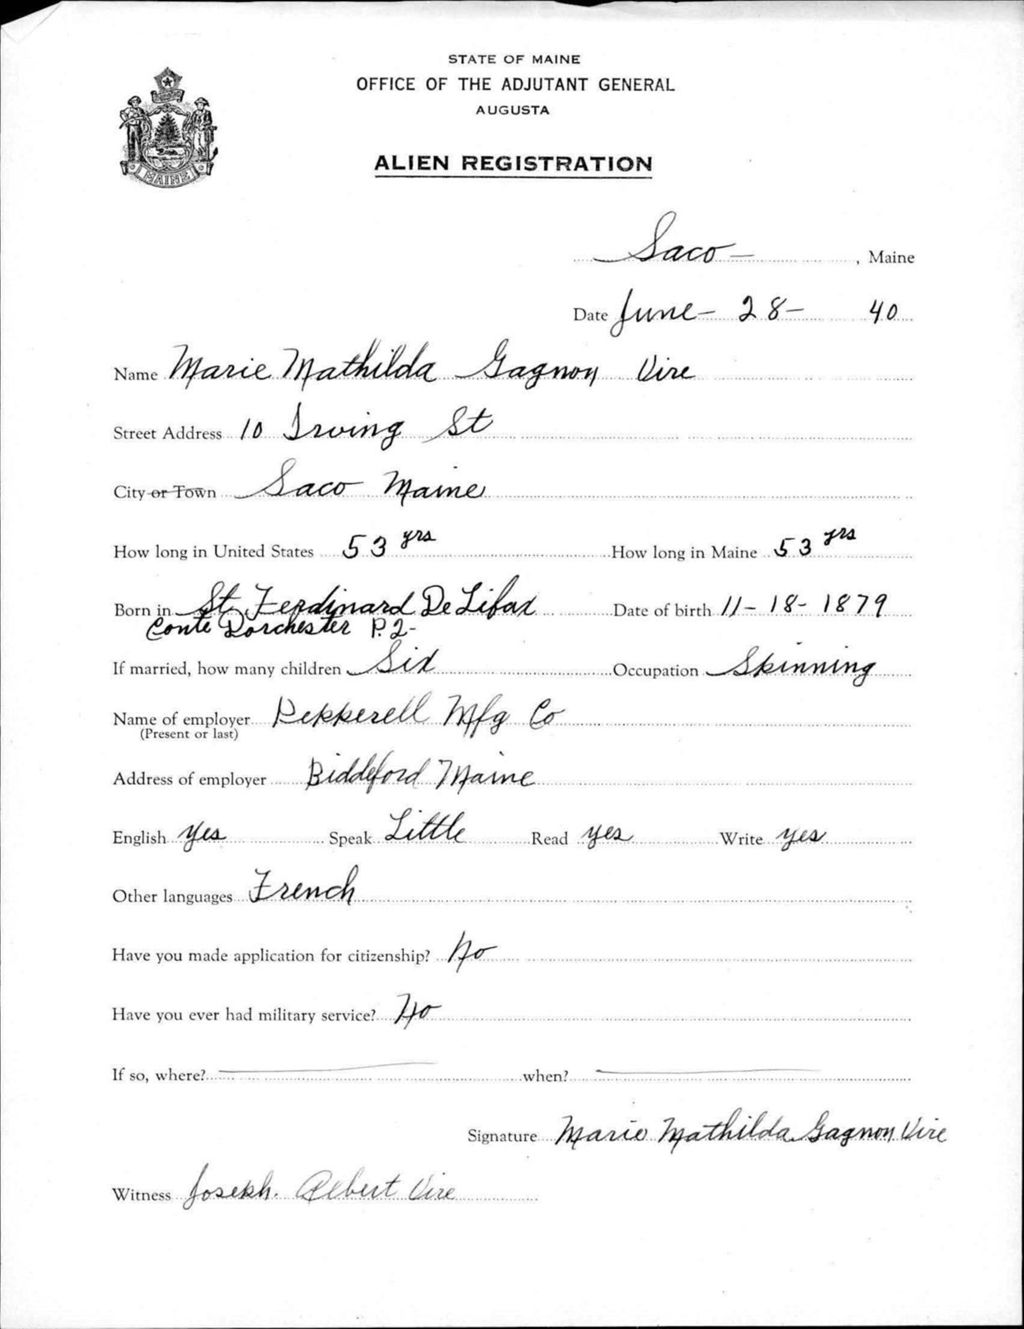 STATE OF MAINE
OFFICE OF THE ADJUTANT GENERAL
AUGUSTA
ALIEN REGISTRATION
MAINE
Saco — , Maine
Date June - 28 - 40
Name Marie Mathilda Gagnon Vire
Street Address 10 Irving St
City or Town Saco Maine
How long in United States 53 yrs How long in Maine 53 yrs
Born in St. Ferdinard De Lifax Date of birth 11 - 18 - 1879
Conté Dorchester P.2-
If married, how many children Six Occupation Skinning
Name of employer Pepperell Mfg Co
(Present or last)
Address of employer Biddeford Maine
English yes Speak Little Read yes Write yes
Other languages French
Have you made application for citizenship? No
Have you ever had military service? No
If so, where? when?
Signature Marie Mathilda Gagnon Vire
Witness Joseph. Albert Vire